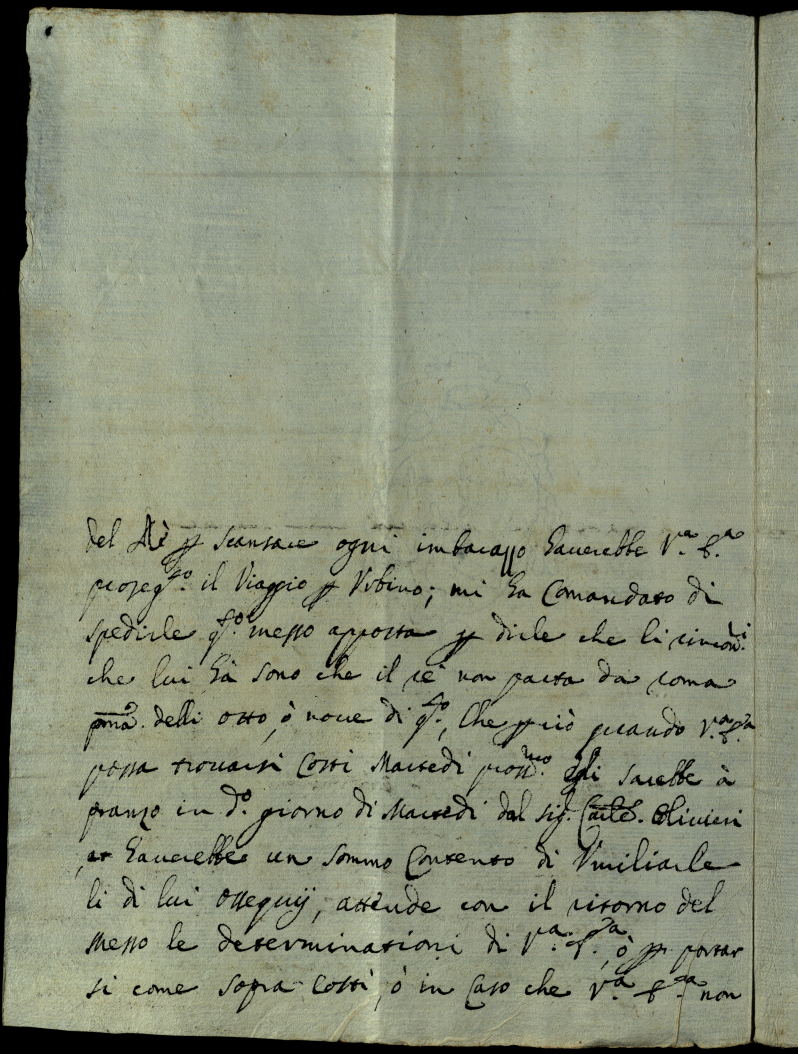 del Rè p scansare ogni imbarazzo hauerebbe V.a S.a
proseg.to il Viaggio p Vrbino; mi ha Comandato di
spedirle q.to messo apposta p dirle che li rincon.ri
che lui hà sono che il rè non parta da roma
pma. delli otto, ò noue di q.to, che p ciò quando V.a S.a
possa trouarsi Costì Martedi pross.mo egli sarebbe à
pranzo in d.o giorno di Martedi dal sig. Carle. Oliuieri
, et hauerebbe un sommo Contento di Vmiliarle
li di lui ossequij, attende con il ritorno del
messo le determinationi di V.a S.a, ò p portar
si come sopra Costì, ò in Caso che V.a S.a non